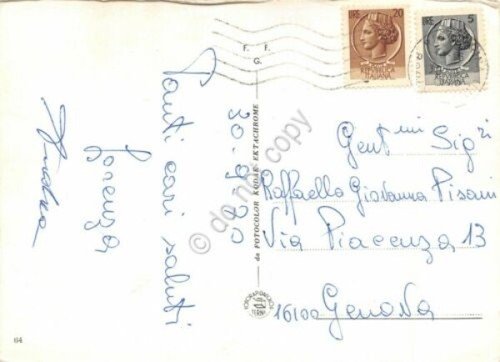 Tanti cari saluti
Lorenza
Andrea
30.9.70
F. F.
G.
da FOTOCOLOR KODAK EKTACHROME
TERNI
64
LIRE 20
REPUBBLICA
ITALIANA
LIRE 5
REPUBBLICA
ITALIANA
Gent.mi Sig.ri
Raffaello Giovanna Pisani
Via Piacenza 13
16100 Genova
do not copy